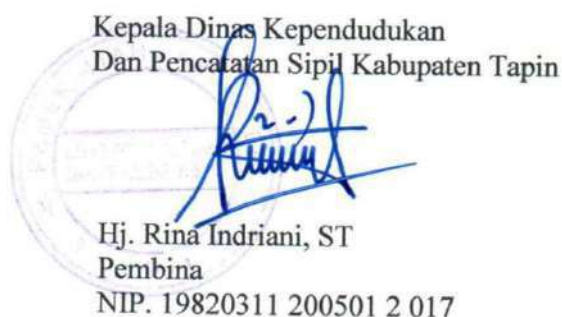 Kepala Dinas Kependudukan
Dan Pencatatan Sipil Kabupaten Tapin
Hj. Rina Indriani, ST
Pembina
NIP. 19820311 200501 2 017